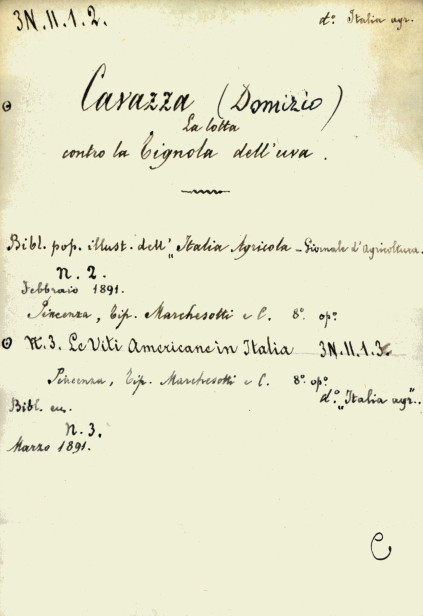 3N.II.1.2. d°. Italia agr.
Cavazza (Domizio)
La lotta
contro la Tignola dell'uva.
Bibl. pop. illust. dell' "Italia Agricola – Giornale d'Agricoltura.
N. 2.
Febbraio 1891.
Piacenza, Tip. Marchesotti e C. 8° op°.
N. 3. Le Viti Americane in Italia 3N.II.1.3.
Piacenza, Tip. Marchesotti e C. 8° op°.
d°. "Italia agr"..
Bibl. eu.
N. 3.
Marzo 1891.
C